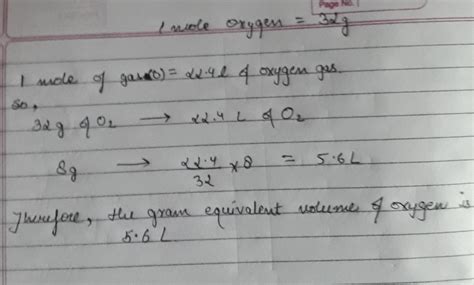 Page No.
1 mole oxygen = 32g
1 mole of gas(O) = 22.4l of oxygen gas.
so,
32g of O₂ → 22.4 L of O₂
8g → 22.4/32 × 8 = 5.6L
Therefore, the gram equivalent volume of oxygen is
5.6 L